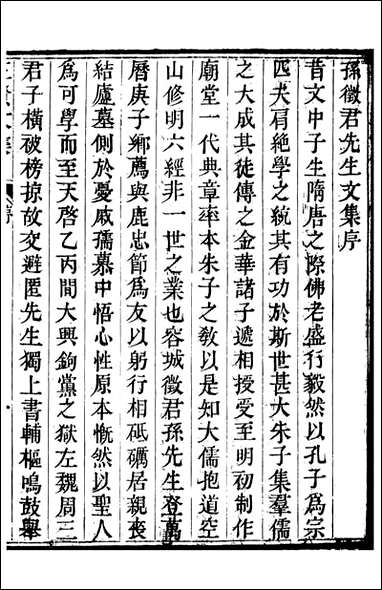 孫徵君先生文集序
昔文中子生隋唐之際佛老盛行毅然以孔子爲宗
匹夫肩絕學之統其有功於斯世甚大朱子集羣儒
之大成其徒傳之金華諸子遞相授受至明初制作
廟堂一代典章率本朱子之敎以是知大儒抱道空
山修明六經非一世之業也容城徵君孫先生登萬
曆庚子鄉薦與鹿忠節爲友以躬行相砥礪居親喪
結廬墓側於憂戚孺慕中悟心性原本慨然以聖人
爲可學而至天啓乙丙間大興鉤黨之獄左魏周三
君子橫被榜掠故交避匿先生獨上書輔樞鳴鼓舉
序